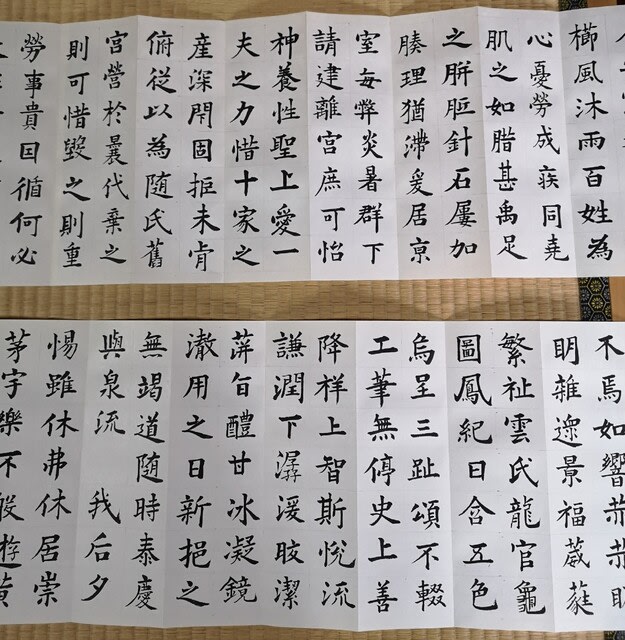 櫛風沐雨百姓為
心憂勞成疾同堯
肌之如腊甚禹足
之胼胝針石屢加
腠理猶滯爰居京
室每弊炎暑群下
請建離宮庶可怡
神養性聖上愛一
夫之力惜十家之
産深閇固拒未肯
俯從以為随氏舊
宮營於曩代棄之
則可惜毀之則重
勞事貴因循何必
不焉如響赫赫明
明雜遝景福葳蕤
繁祉雲氏龍官龜
圖鳳紀日含五色
烏呈三趾頌不輟
工筆無停史上善
降祥上智斯悅流
謙潤下潺湲皎潔
蓱旨醴甘冰凝鏡
澈用之日新挹之
無竭道随時泰慶
與泉流 我后夕
惕雖休弗休居崇
茅宇樂不般遊黃